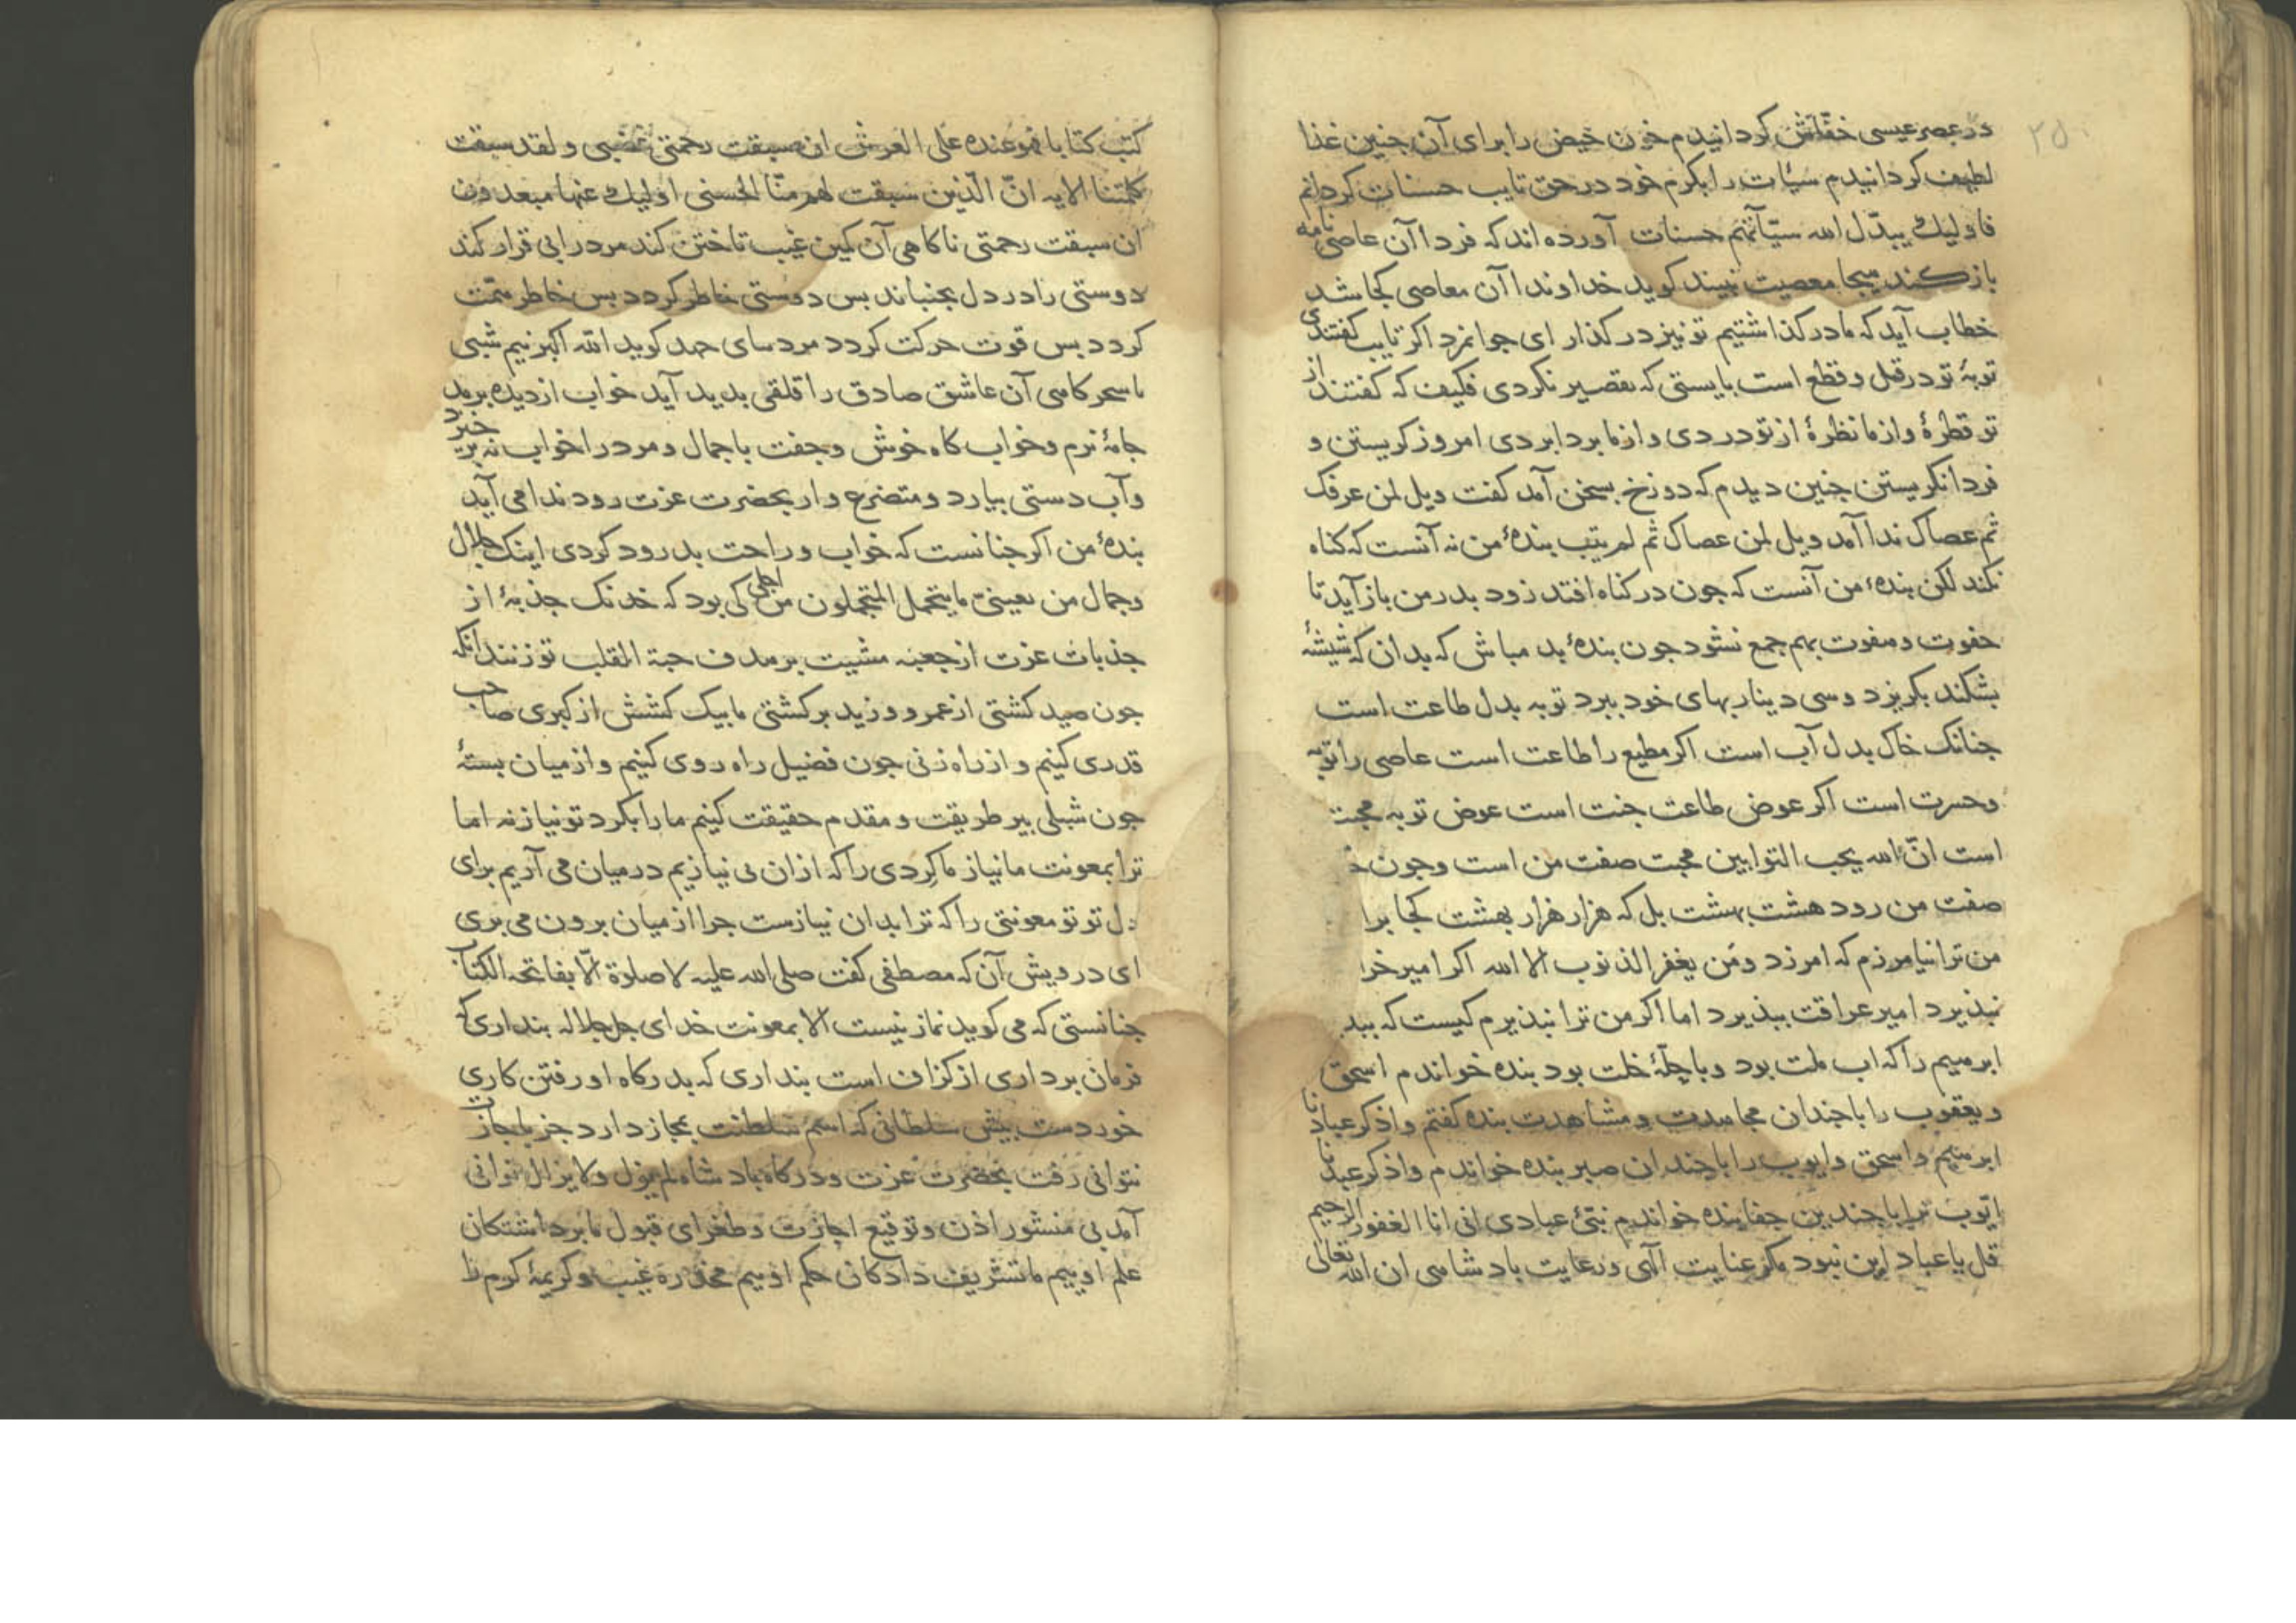 ۲۵
در عصر عیسی خفّاش کردانیدم خون حیض را برای آن جنین غذا
لطیف کردانیدم سیّات را بکرم خود در حق تایب حسنات کردانم
فاولیك یبدّل الله سیّآتهم حسنات آورده اند که فردا آن عاصی نامه
باز کند هیجا معصیت نبیند کوید خداوندا آن معاصی کجا شد
خطاب آید که ما در کذاشتیم تو نیز در کذار ای جوانمرد اکر تایب کفتندی
توبۀ تو در قل و قطع است بایستی که تقصیر نکردی فکیف که کفتند از
تو قطرۀ و از ما نظرۀ از تو دردی و از ما بردابردی امروز کریستن و
فردا نکریستن جنین دیدم که دوزخ بسخن آمد کفت ویل لمن عرفک
ثم عصاک ندا آمد ویل لمن عصاک ثم لم یتب بندۀ من نه آنست که کناه
نکند لکن بندۀ من آنست که جون در کناه افتد زود بدر من باز آید تا
حفوت و صفوت بهم جمع نشود جون بندۀ بد مباش که بدان که شیشۀ
بشکند بکریزد و سی دینار بهای خود ببرد توبه بدل طاعت است
جنانک خاک بدل آب است اکر مطیع را طاعت است عاصی را توبه
و حسرت است اکر عوض طاعت جنت است عوض توبه محبت
است انّ الله یحب التوابین محبت صفت من است و جون
صفت من رود هشت بهشت بل که هزار هزار بهشت کجا برا
من ترا نیامرزم که امرزد و مَن یغفر الذنوب الا الله اکر امیر خرا
نپذیرد امیر عراقت بپذیرد اما اکر من ترا نپذیرم کیست که بپذ
ابرهیم را که اب ملت بود و با حلّۀ خلت بود بنده خواندم اسحق
و یعقوب را با جندان مجاهدت و مشاهدت بنده کفتم و اذکر عبادنا
ابرهیم و اسحق و ایوب را با جندان صبر بنده خواندم و اذکر عبدنا
ایّوب ترا با جندین جفا بنده خواندم نبّئ عبادی انی انا الغفور الرحیم
قل یا عباد این نبود مکر عنایت الهی و رعایت بادشاهی ان الله تعالی
کتب کتابا فهو عنده علی العرش ان سبقت رحمتی غضبی و لقد سبقت
کلمتنا الایه انّ الّذین سبقت لهم منّا الحسنی اولیك عنها مبعدون
ان سبقت رحمتی ناکاهی آن کمین غیب تاختن کند مرد را بی قرار کند
دوستی را در دل بجنباند بس دوستی خاطر کردد بس خاطر همّت
کردد بس قوت حرکت کردد مردهای جهد کوید الله اکبر نیم شبی
یا سحرکاهی آن عاشق صادق را قلقی بدید آید خواب از دیده برمد
جامۀ نرم و خوابکاه خوش و جفت با جمال و مرد را خواب نه برخیزد
و آب دستی بیارد و متضرع وار بحضرت عزت رود ندا می آید
بندۀ من اکر جنانست که خواب و راحت بدرود کردی اینک جلال
و جمال من بعینیّ ما یتحمل المتحملون من اجلی کی بود که خدنک جذبۀ از
جذبات عزت از جعبه مشیت بر هدف حبة القلب تو زنند انکه
جون صید کشتی از عمرو و زید برکشتی ما بیک کشش از کبری صاحب
قدری کنیم و از راه زنی جون فضیل راه روی کنیم و از میان بستۀ
جون شبلی بیر طریقت و مقدم حقیقت کنیم ما را بکرد تو نیاز نه اما
ترا بمعونت ما نیاز ما کردی را که ازان بی نیازیم در میان می آریم برای
دل تو تو معونتی را که ترا بدان نیازست جرا از میان برون می بری
ای درویش آن که مصطفی کفت صلی الله علیه لا صلوة الّا بفاتحه الکتاب
جنانستی که می کوید نماز نیست الا بمعونت خدای جل جلاله بنداری که
فرمان برداری از کزاف است بنداری که بدرکاه او رفتن کاری
خوردست بیش سلطانی که اسم سلطنت بمجاز دارد جز باجازت
نتوانی رفت بحضرت عزت و درکاه بادشاه لم یزل و لا یزال توانی
آمد بی منشور اذن و توقیع اجازت و طغرای قبول ما برداشتکان
علم اوییم ما تشریف دادکان حکم اوییم مخدره غیب و کریمۀ کرم ما